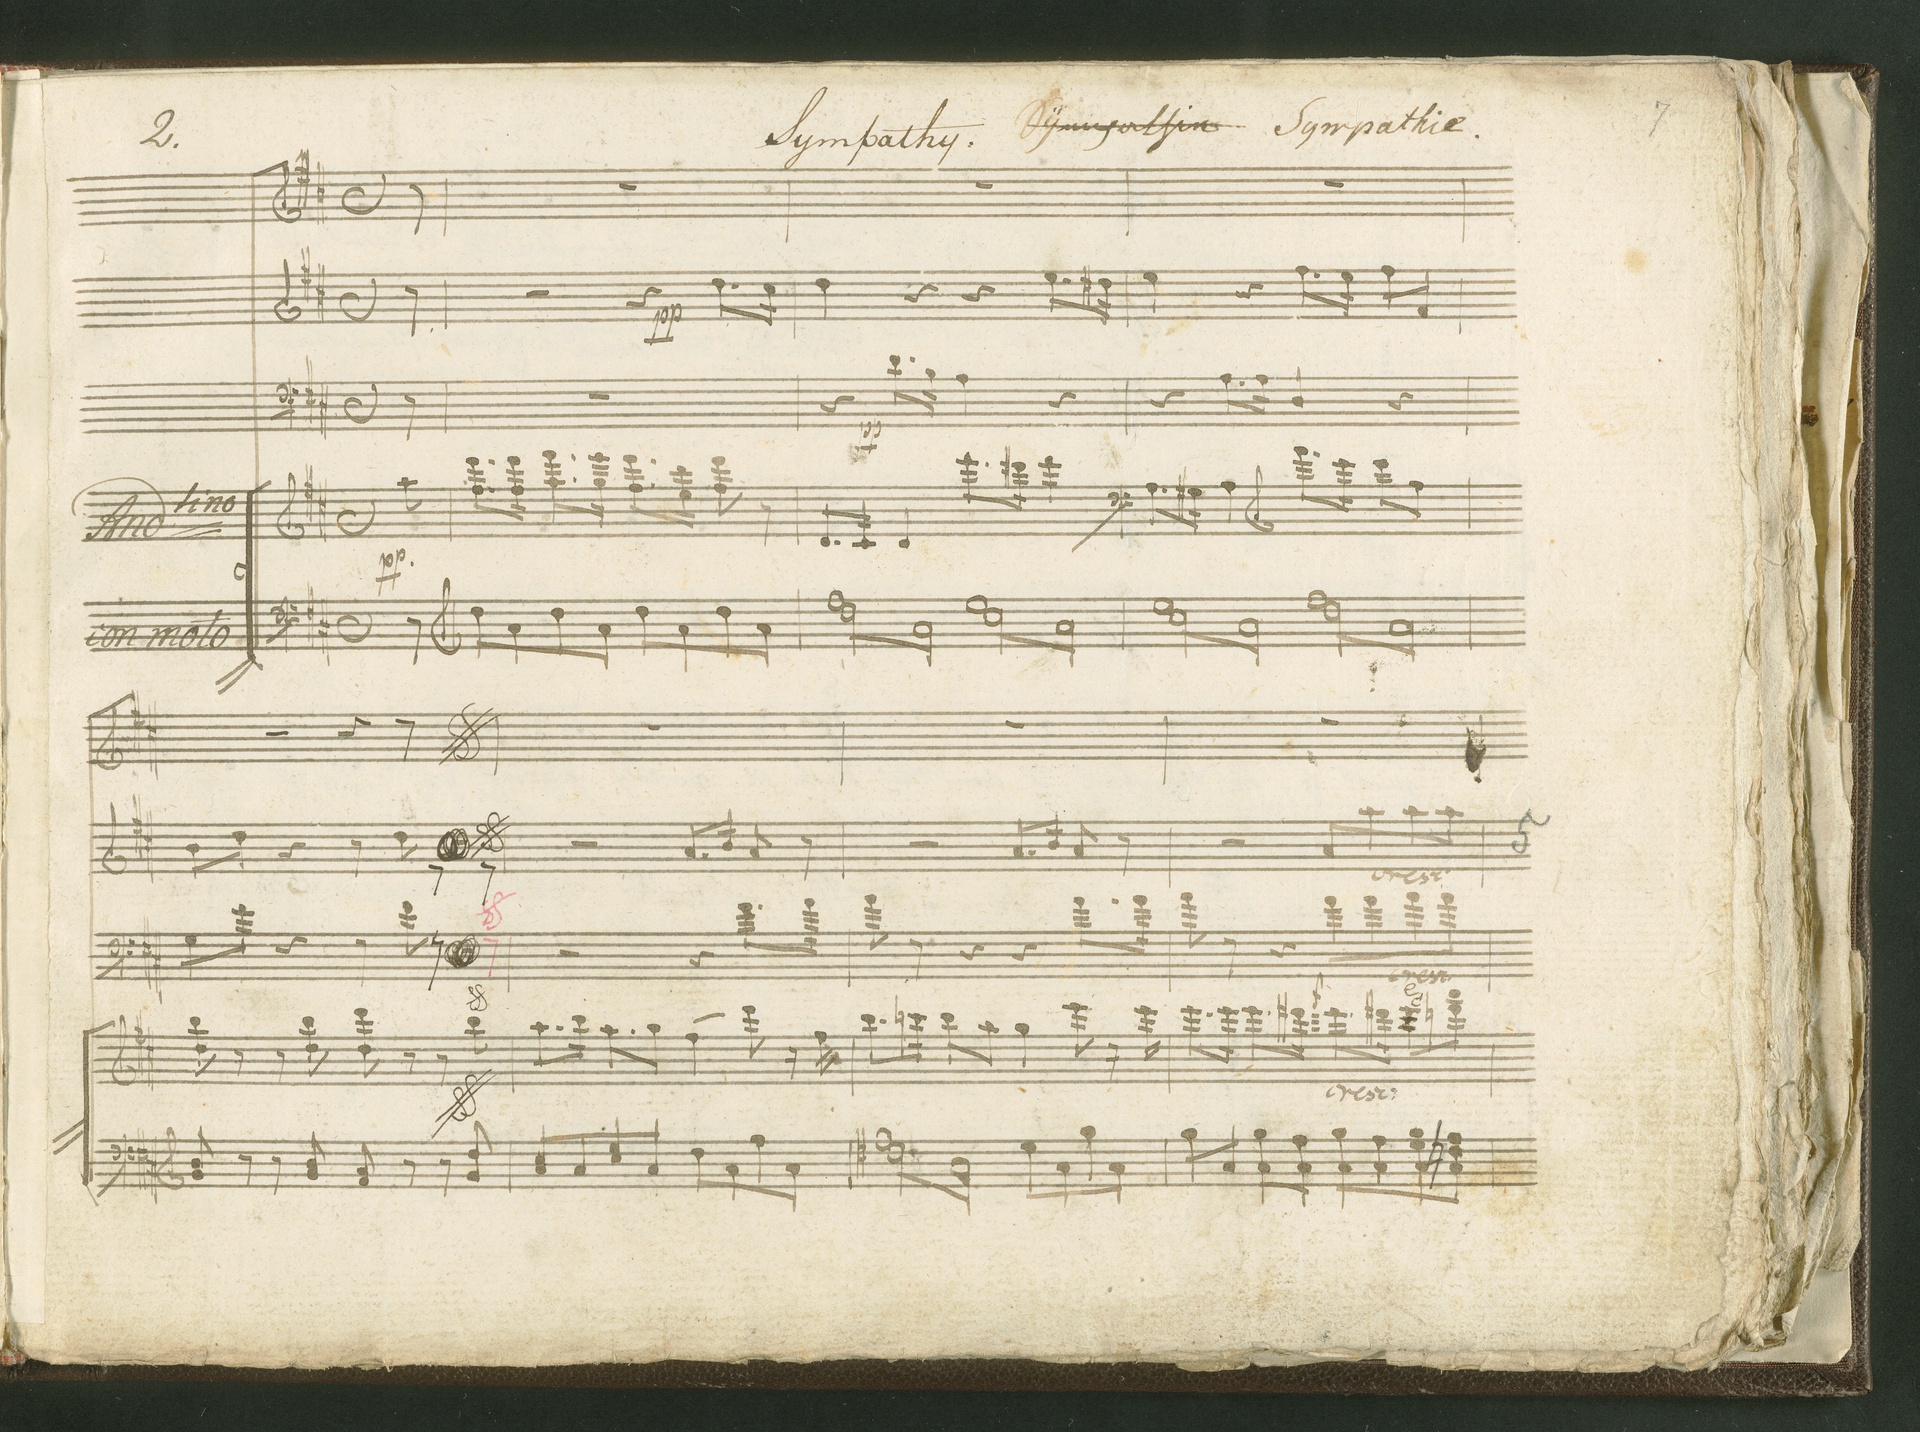 2. Sympathy. Sympathie. 7
pp
pp
Andtino
pp.
con moto
5
cresc:
cresc:
cresc: